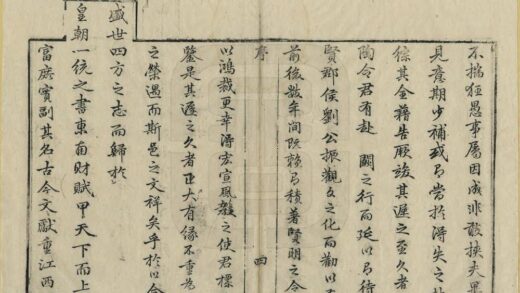 不揣狂愚事屬因成非敢挾夫畢
見意期少補或另當於得失之林
徐其金籍告厥竣其遲之至久者
陶令君有赴　闕之行而延以另待
賢郡侯劉公振觀文之化而勸以
前後數年間既賴另積著賢明之令
序　四
以鴻裁更幸得宏宣風教之使君標
鑒是其遲之久者正大有緣不重為
之榮遇而斯邑之文祥矣乎於以今
盛世四方之志而歸於
皇朝一統之書東南財賦甲天下而上
富庶實副其名古今文獻重江西